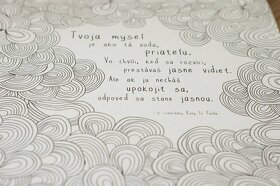 Tvoja myseľ
je ako tá voda,
priateľu.
Vo chvíli, keď sa rozvíri,
prestávaš jasne vidieť.
Ale ak ju necháš
upokojiť sa,
odpoveď sa stane jasnou.
z rozprávky Kung Fu Panda